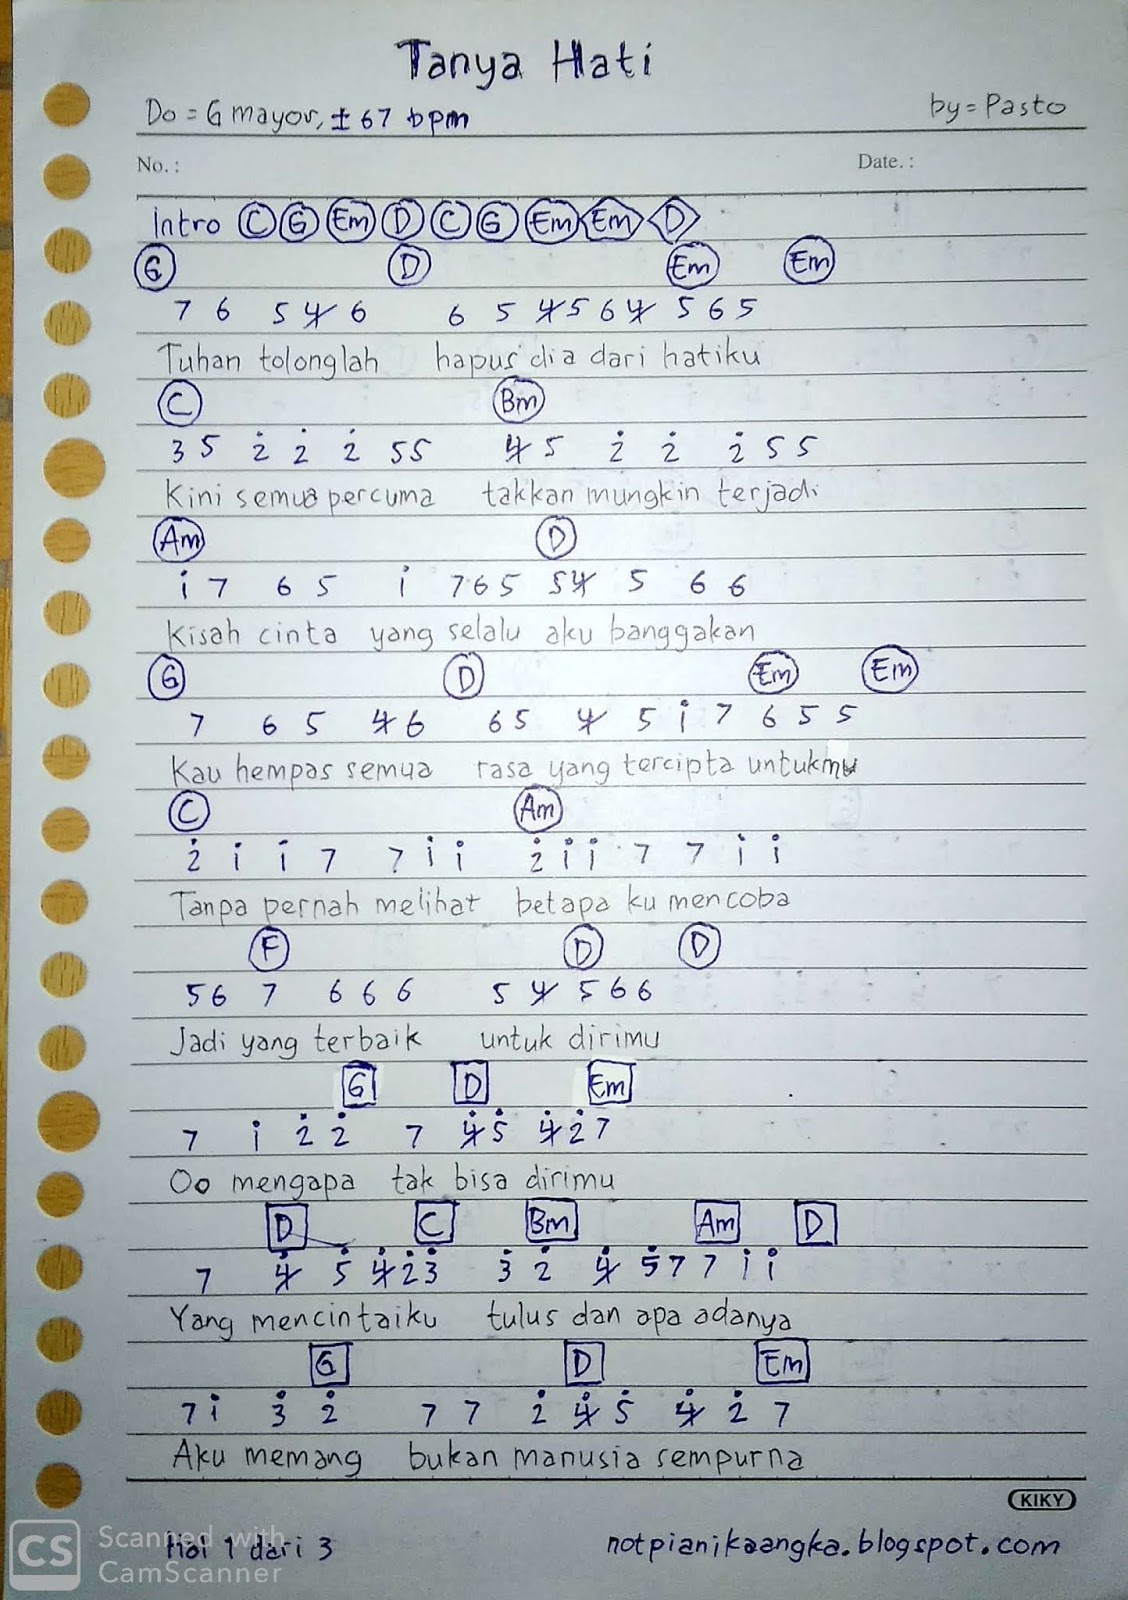 Tanya Hati
Do = G mayor, ± 67 bpm by = Pasto
No. : Date. :
Intro C G Em D C G Em Em D
G D Em Em
7 6 5 4̸ 6 6 5 4̸ 5 6 4̸ 5 6 5
Tuhan tolonglah hapus dia dari hatiku
C Bm
3 5 2̇ 2̇ 2̇ 5 5 4̸ 5 2̇ 2̇ 2̇ 5 5
Kini semua percuma takkan mungkin terjadi
Am D
1̇ 7 6 5 1̇ 7 6 5 5 4̸ 5 6 6
Kisah cinta yang selalu aku banggakan
G D Em Em
7 6 5 4̸ 6 6 5 4̸ 5 1̇ 7 6 5 5
Kau hempas semua rasa yang tercipta untukmu
C Am
2̇ 1̇ 1̇ 7 7 1̇ 1̇ 2̇ 1̇ 1̇ 7 7 1̇ 1̇
Tanpa pernah melihat betapa ku mencoba
F D D
5 6 7 6 6 6 5 4̸ 5 6 6
Jadi yang terbaik untuk dirimu
G D Em
7 1̇ 2̇ 2̇ 7 4̸̇ 5̇ 4̸̇ 2̇ 7
Oo mengapa tak bisa dirimu
D C Bm Am D
7 4̸̇ 5̇ 4̸̇ 2̇ 3̇ 3̇ 2̇ 4̸̇ 5̇ 7 7 1̇ 1̇
Yang mencintaiku tulus dan apa adanya
G D Em
7 1̇ 3̇ 2̇ 7 7 2̇ 4̸̇ 5̇ 4̸̇ 2̇ 7
Aku memang bukan manusia sempurna
KIKY
CS Scanned with
CamScanner
1 dari 3 notpianikaangka.blogspot.com